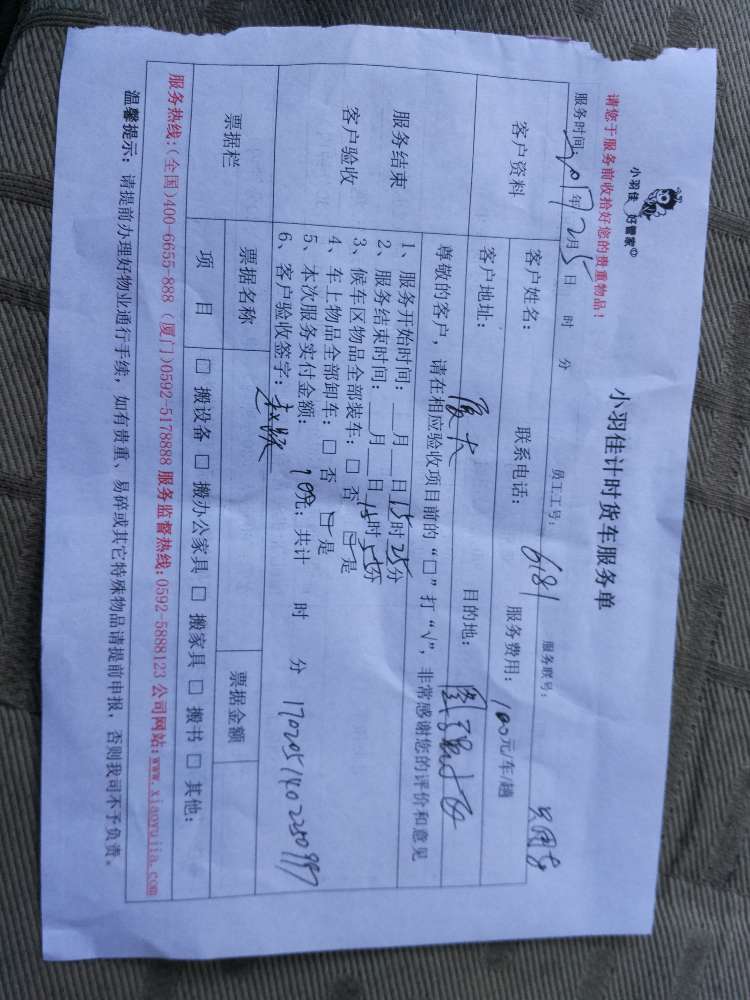 小羽佳 好管家
小羽佳计时货车服务单
请您于服务前收拾好您的贵重物品！
服务时间：2017年2月5日 时 分 员工工号：6181 服务联号：
客户资料 客户姓名： 联系电话： 服务费用：100元/车/趟
客户地址：厦大 目的地：
服务结束
客户验收
尊敬的客户，请在相应验收项目前的“□”打“√”，非常感谢您的评价和意见
1、服务开始时间：__月__日15时25分
2、服务结束时间：__月__日15时55分
3、候车区物品全部装车：□ 否 □ 是
4、车上物品全部卸车：□ 否 □ 是
5、本次服务实付金额：100元；共计 时 分
6、客户验收签字： 1702051402250997
票据栏 票据名称 票据金额
项 目 □ 搬设备 □ 搬办公家具 □ 搬家具 □ 搬书 □ 其他：
服务热线：(全国)400-6655-888 (厦门)0592-5178888 服务监督热线：0592-5888123 公司网站：www.xiaoyujia.com
温馨提示：请提前办理好物业通行手续，如有贵重、易碎或其它特殊物品请提前申报，否则我司不予负责。